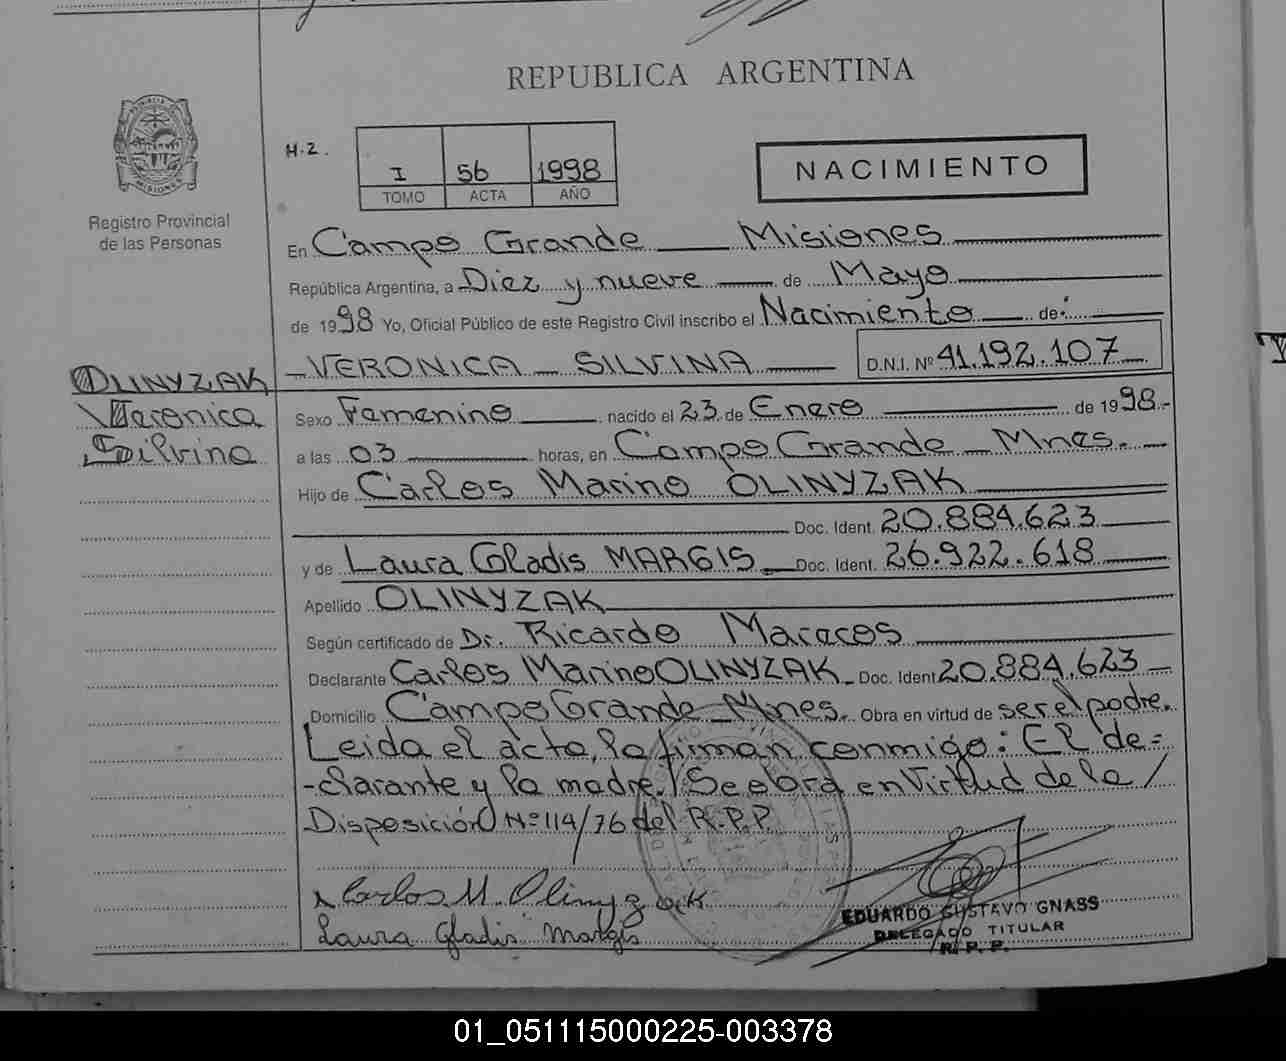 REPUBLICA ARGENTINA
H.Z.
I 56 1998
TOMO ACTA AÑO
NACIMIENTO
MISIONES
Registro Provincial
de las Personas
En Campo Grande Misiones
República Argentina, a Diez y nueve de Mayo
de 1998 Yo, Oficial Público de este Registro Civil inscribo el Nacimiento de:
VERONICA SILVINA D.N.I. Nº 41.192.107
OLINYZAK
Veronica
Silvina
Sexo Femenino nacido el 23 de Enero de 1998.-
a las 03 horas, en Campo Grande - Mnes.
Hijo de Carlos Marino OLINYZAK
Doc. Ident. 20.884.623
y de Laura Gladis MARGIS Doc. Ident. 26.922.618
Apellido OLINYZAK
Según certificado de Dr. Ricardo Maracos
Declarante Carlos Marino OLINYZAK Doc. Ident 20.884.623
Domicilio Campo Grande - Mnes. Obra en virtud de ser el padre.
Leida el acta, la firman conmigo: El de=
-clarante y la madre./ Se obra en Virtud de la /
Disposición Nº 114/76 del R.P.P.
Carlos M. Olinyzak
Laura Gladis Margis
EDUARDO GUSTAVO GNASS
DELEGADO TITULAR
R. P. P.
01_051115000225-003378